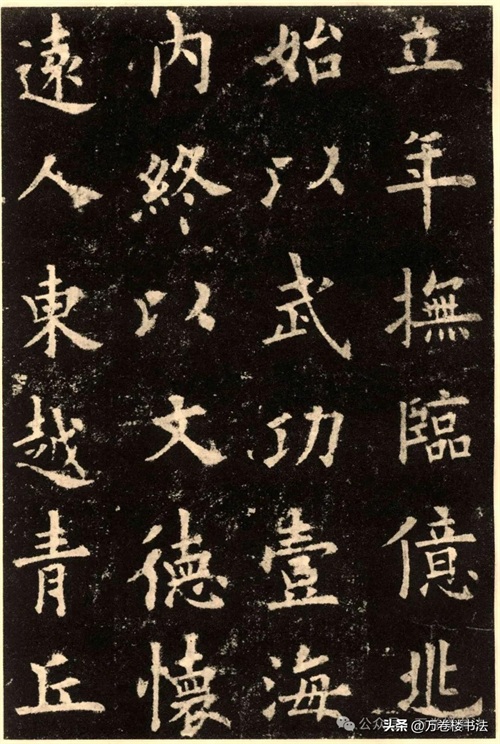 立年撫臨億兆
始以武功壹海
内終以文德懷
遠人東越青丘
头条 @万卷楼书法